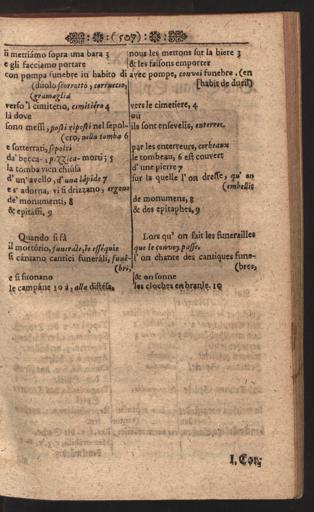 (507)
li mettiámo sopra una bara 3
e gli facciamo portare
con pompa funebre in habito di
(duolo scorrutto, corruccio,
(gramaglia
verso 'l cimiterio, cimitério 4
là dove
sono messi, posti riposti nel sepol-
(cro, nella tomba 6
e sotterrati, sepolti
da' becca-, pizzica- morti; 5
la tomba vien chiusa
d' un' avello, d' una lápide 7
e s' adorna, vi si drizzano, ergono
de' monumenti, 8
& epitaffi, 9
Quando si fà
il mortório, funerale, le esséquie
si cántano cantici funeráli, funé-
(bri,
e si suonano
le campáne 10 à, alla distésa.
nous les mettons sur la biere 3
& les faisons emporter
avec pompe, convoi funebre, (en
(habit de dueil)
vers le cimetiere, 4
où
ils sont ensevelis, enterrez,
par les enterreurs, corbeaux
le tombeau, 6 est couvert
d'une pierre 7
sur la quelle l' on dresse, qu' on
(embellit
de monumens, 8
& des epitaphes, 9
Lors qu' on fait les funerailles
que le convoy passe,
l' on chante des cantiques fune-
(bres,
& on sonne
les cloches en branle. 10
I. Cor;